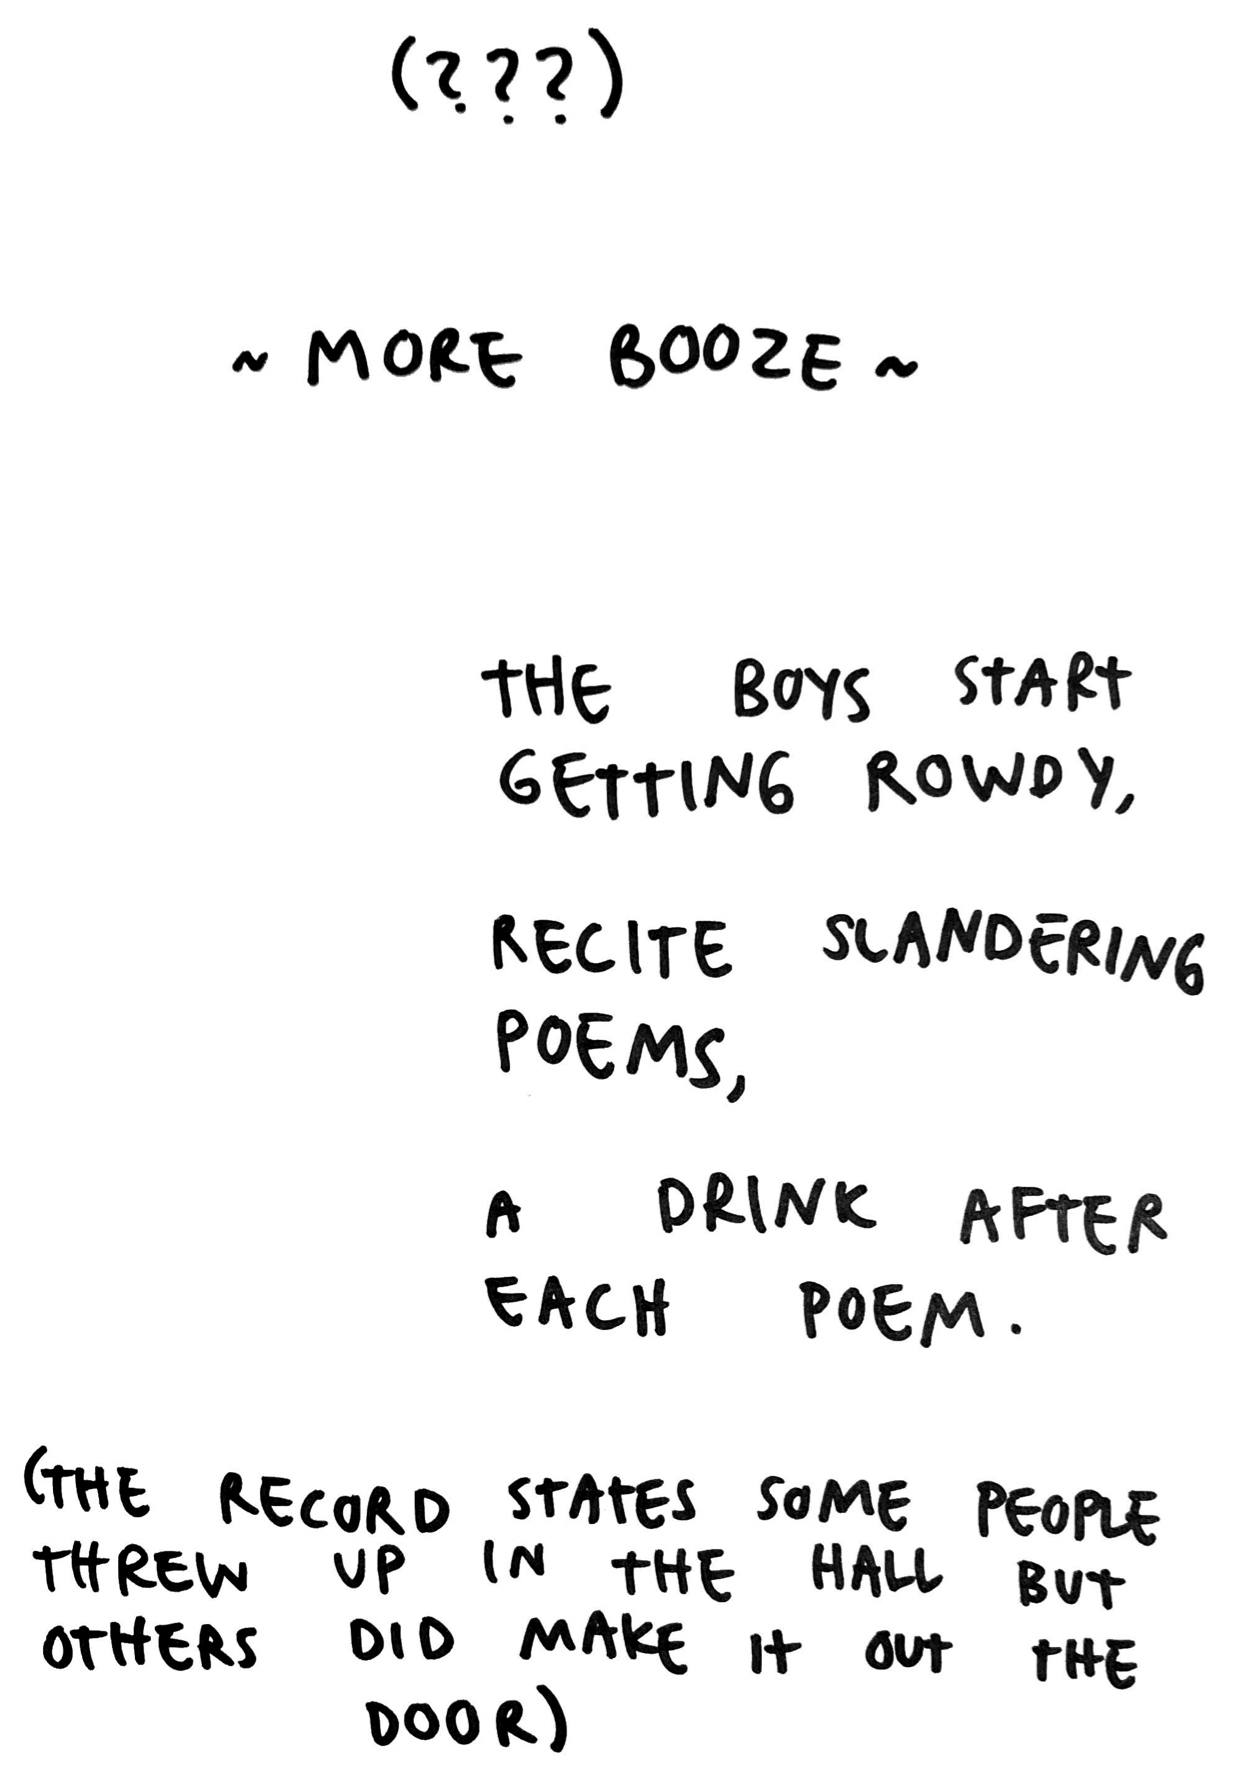 (???)
~ MORE BOOZE ~
THE BOYS START
GETTING ROWDY,
RECITE SLANDERING
POEMS,
A DRINK AFTER
EACH POEM.
(THE RECORD STATES SOME PEOPLE
THREW UP IN THE HALL BUT
OTHERS DID MAKE IT OUT THE
DOOR)